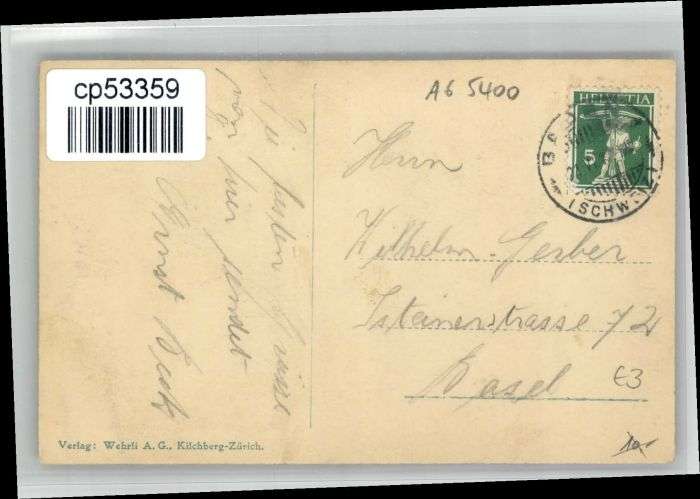 cp53359
A6 5400
HELVETIA
5
BA
(SCHWYZ)
Die besten Grüsse
von hier sendet
Ernst Beck
Herrn
Wilhelm Gerber
Isteinerstrasse 72
Basel
€3
10.-
Verlag: Wehrli A. G., Kilchberg-Zürich.